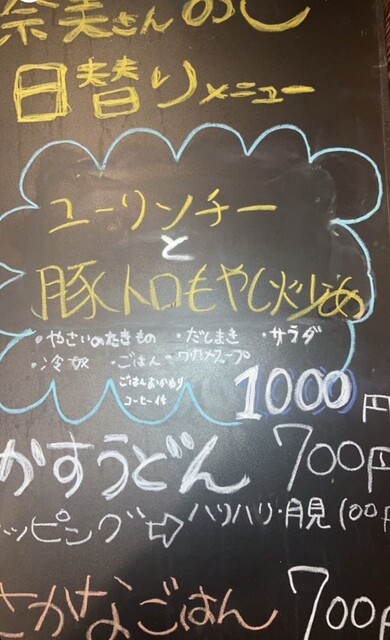 奈美さんのめし
日替りメニュー
ユーリンチー
と
豚トロもやし炒め
・やさいのたきもの ・だしまき ・サラダ
・冷奴 ・ごはん ・ワカメスープ
ごはんおかわり
コーヒー付
1000円
かすうどん 700円
ッピング⇨ハリハリ・月見 100円
さかなごはん 700